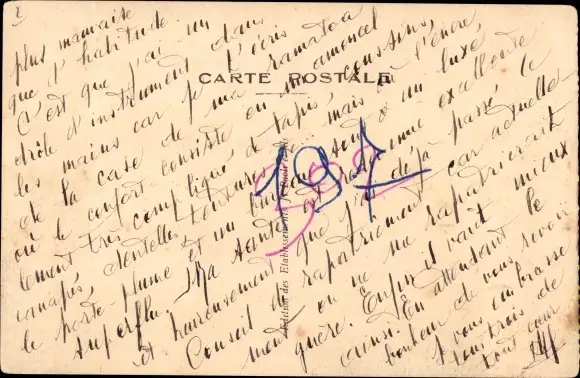 2
CARTE POSTALE
plus mauvaise
que d'habitude.
C'est que j'ai un
drôle d'instrument dans
les mains car j'écris
de la case de ma ramatoa
où le confort consiste en un amoncel
lement très compliqué de tapis, coussins,
canapés, dentelles tentures mais où l'encre,
le porte plume et un buvard sont un luxe
superflu. Ma santé est redevenue excellente
et heureusement que j'ai déjà passé le
Conseil de rapatriement car actuelle-
ment on ne me rapatrierait
guère. Enfin il vaut mieux
ainsi. En attendant le
bonheur de vous revoir
je vous embrasse
tous trois de
tout cœur
197
Edition des Etablissements